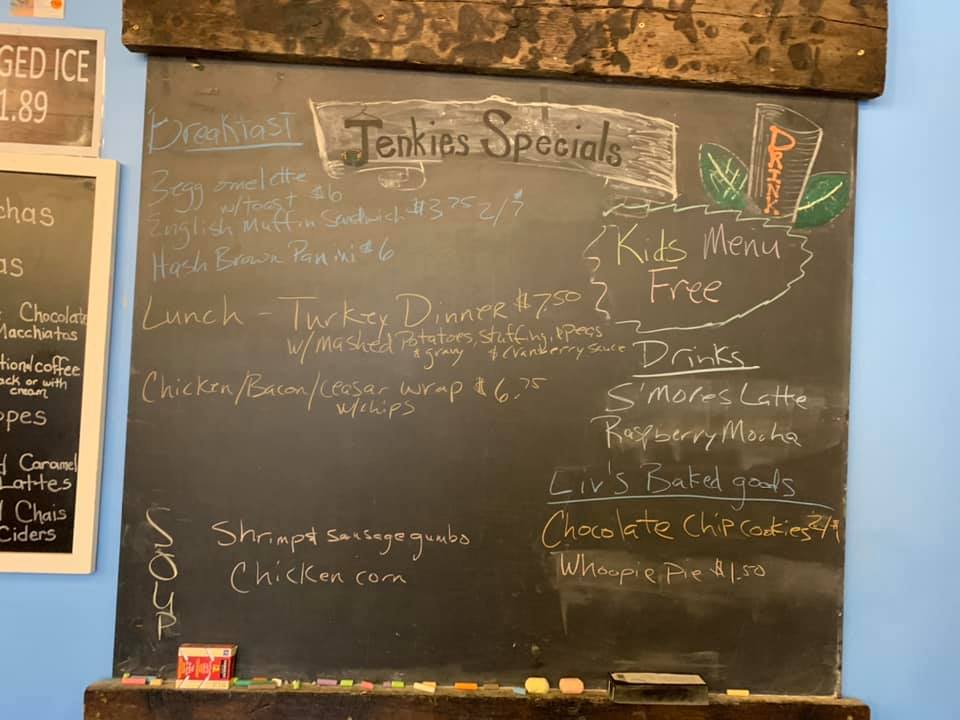 GED ICE
1.89
chas
as
Chocolate
Macchiatos
tion/coffee
ack or with
cream
opes
d Caramel
Lattes
d Chais
Ciders
Jenkies Specials
DRINK
Breakfast
3 egg omelette
w/toast $6
English Muffin Sandwich $3.75 2/$7
Hash Brown Panini $6
Kids Menu
Free
Lunch - Turkey Dinner $7.50
w/ Mashed Potatoes, stuffing, & peas
& gravy & cranberry sauce
Chicken/Bacon/Ceasar wrap $6.75
w/chips
Drinks
S'mores Latte
Raspberry Mocha
Liv's Baked goods
Chocolate Chip cookies 2/$1
Whoopie Pie $1.50
SOUP
Shrimp & sausage gumbo
Chicken corn